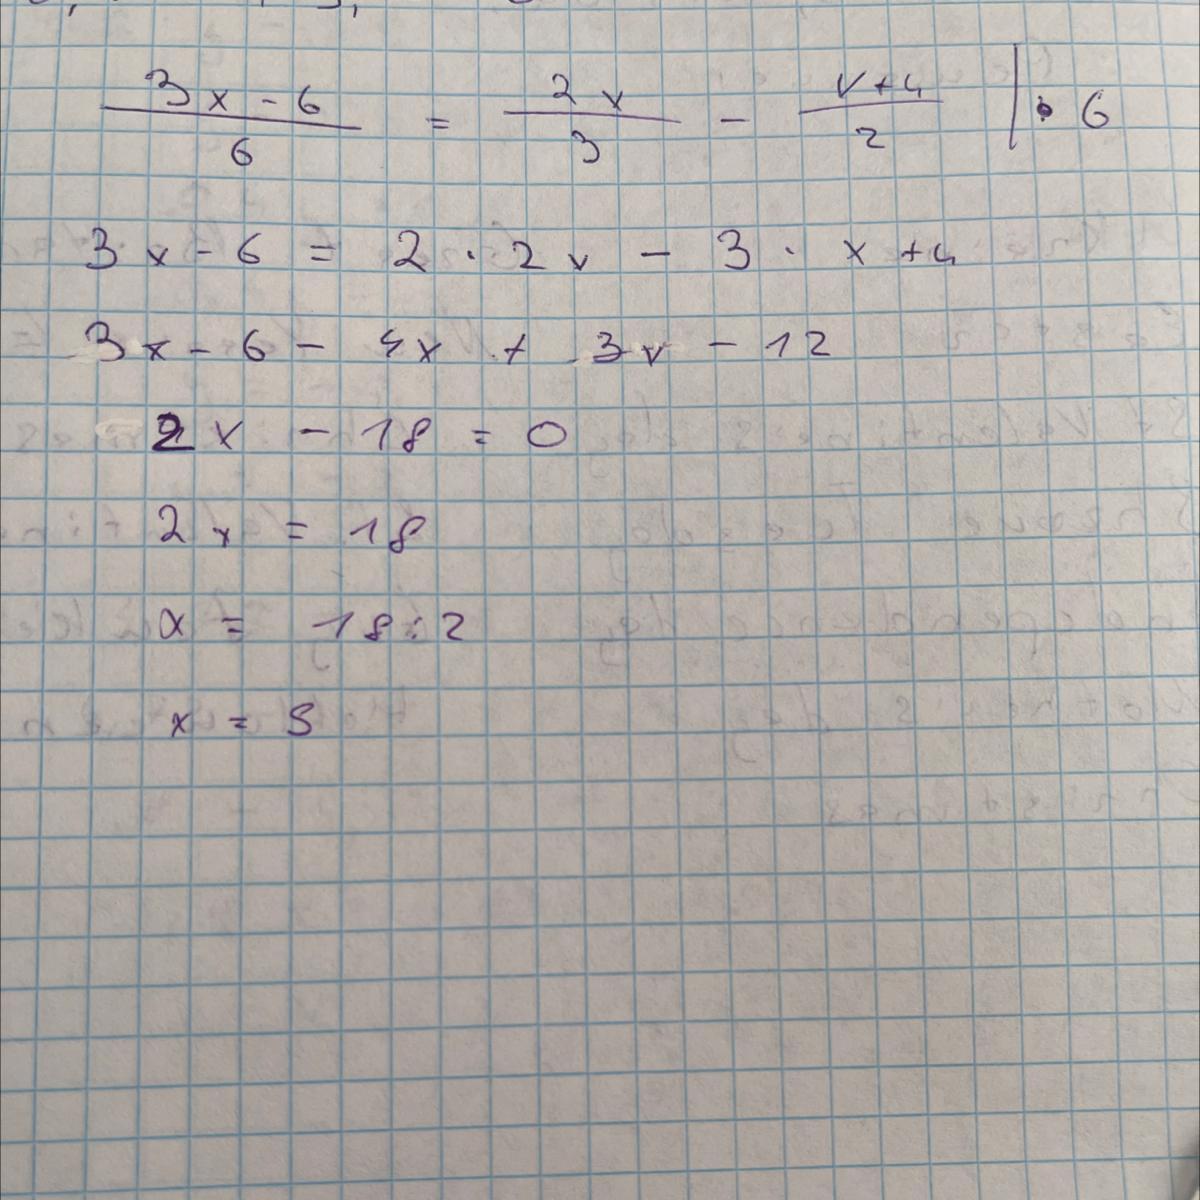 3x - 6 / 6 = 2x / 3 - x + 4 / 2 | • 6
3x - 6 = 2 · 2x - 3 · x + 4
3x - 6 - 4x + 3x - 12
2x - 18 = 0
2x = 18
x = 18 : 2
x = 9